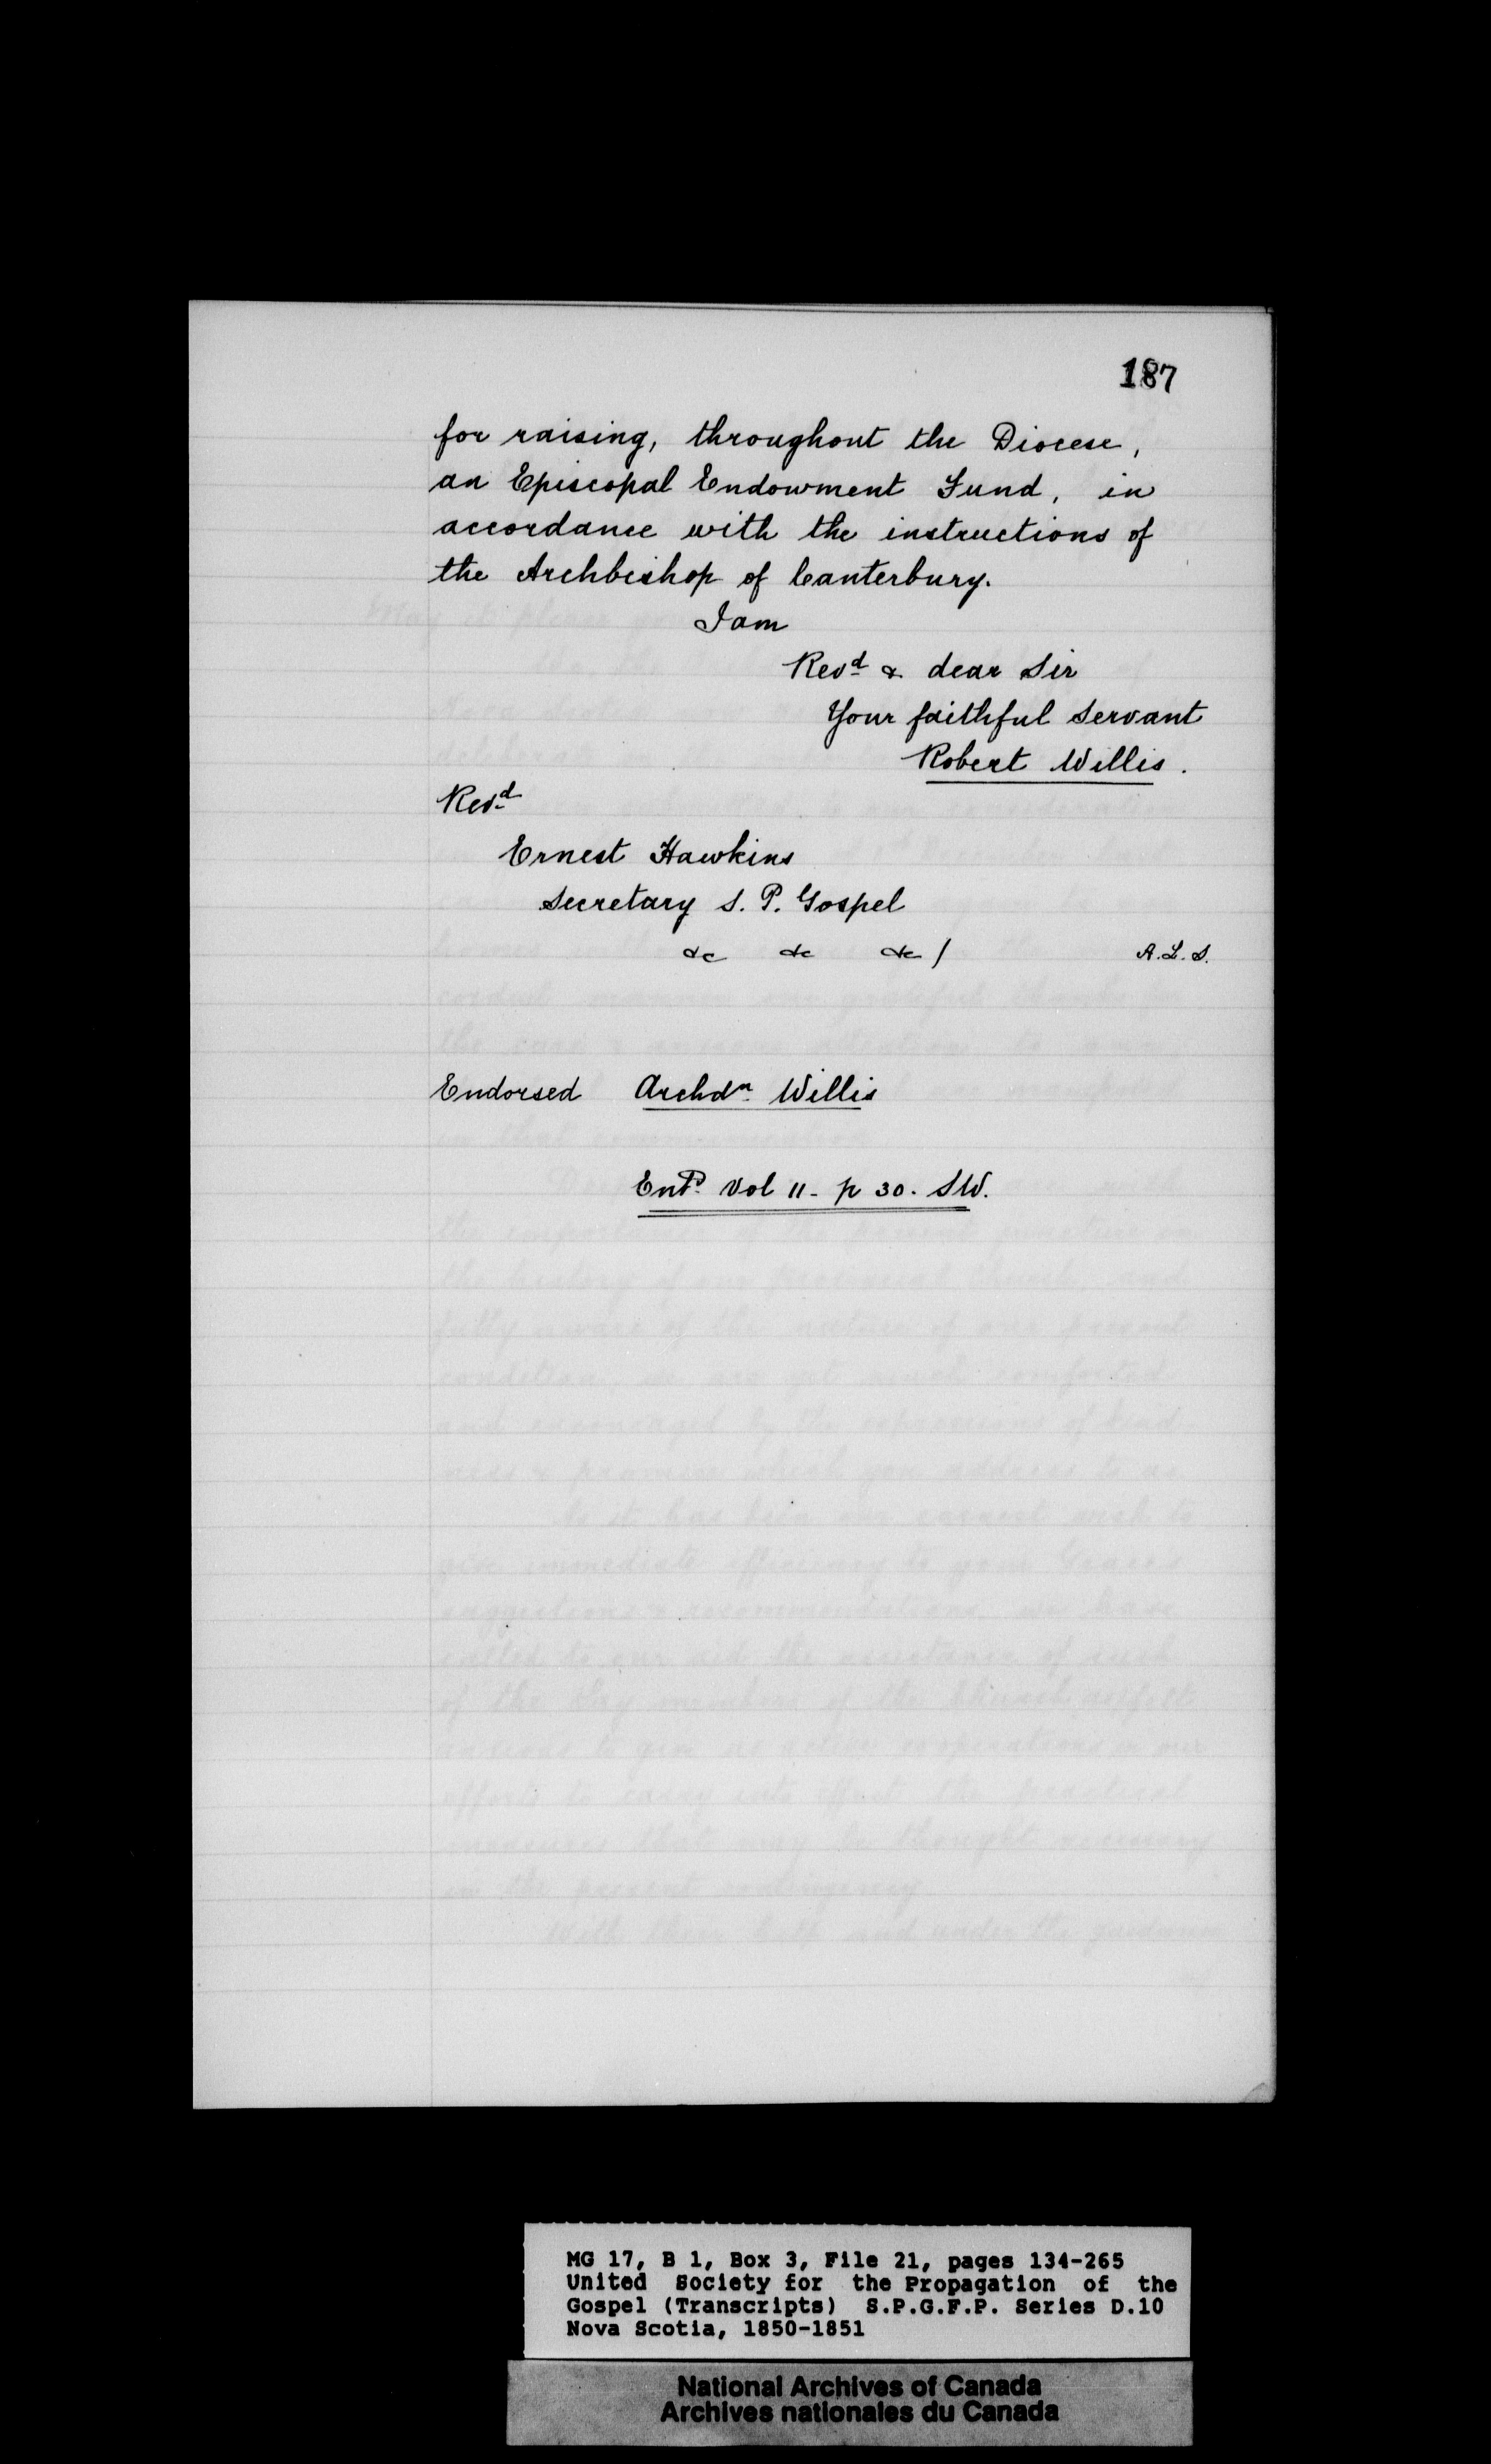 187
for raising, throughout the Diocese,
an Episcopal Endowment Fund, in
accordance with the instructions of
the Archbishop of Canterbury.
I am
Revd & dear Sir
Your faithful Servant
Robert Willis.
Revd
Ernest Hawkins
Secretary S. P. Gospel
&c &c &c / A.L.S.
Endorsed Archdn Willis
Entd Vol 11 - p 30. SW.
MG 17, B 1, Box 3, File 21, pages 134-265
United Society for the Propagation of the
Gospel (Transcripts) S.P.G.F.P. Series D.10
Nova Scotia, 1850-1851
National Archives of Canada
Archives nationales du Canada